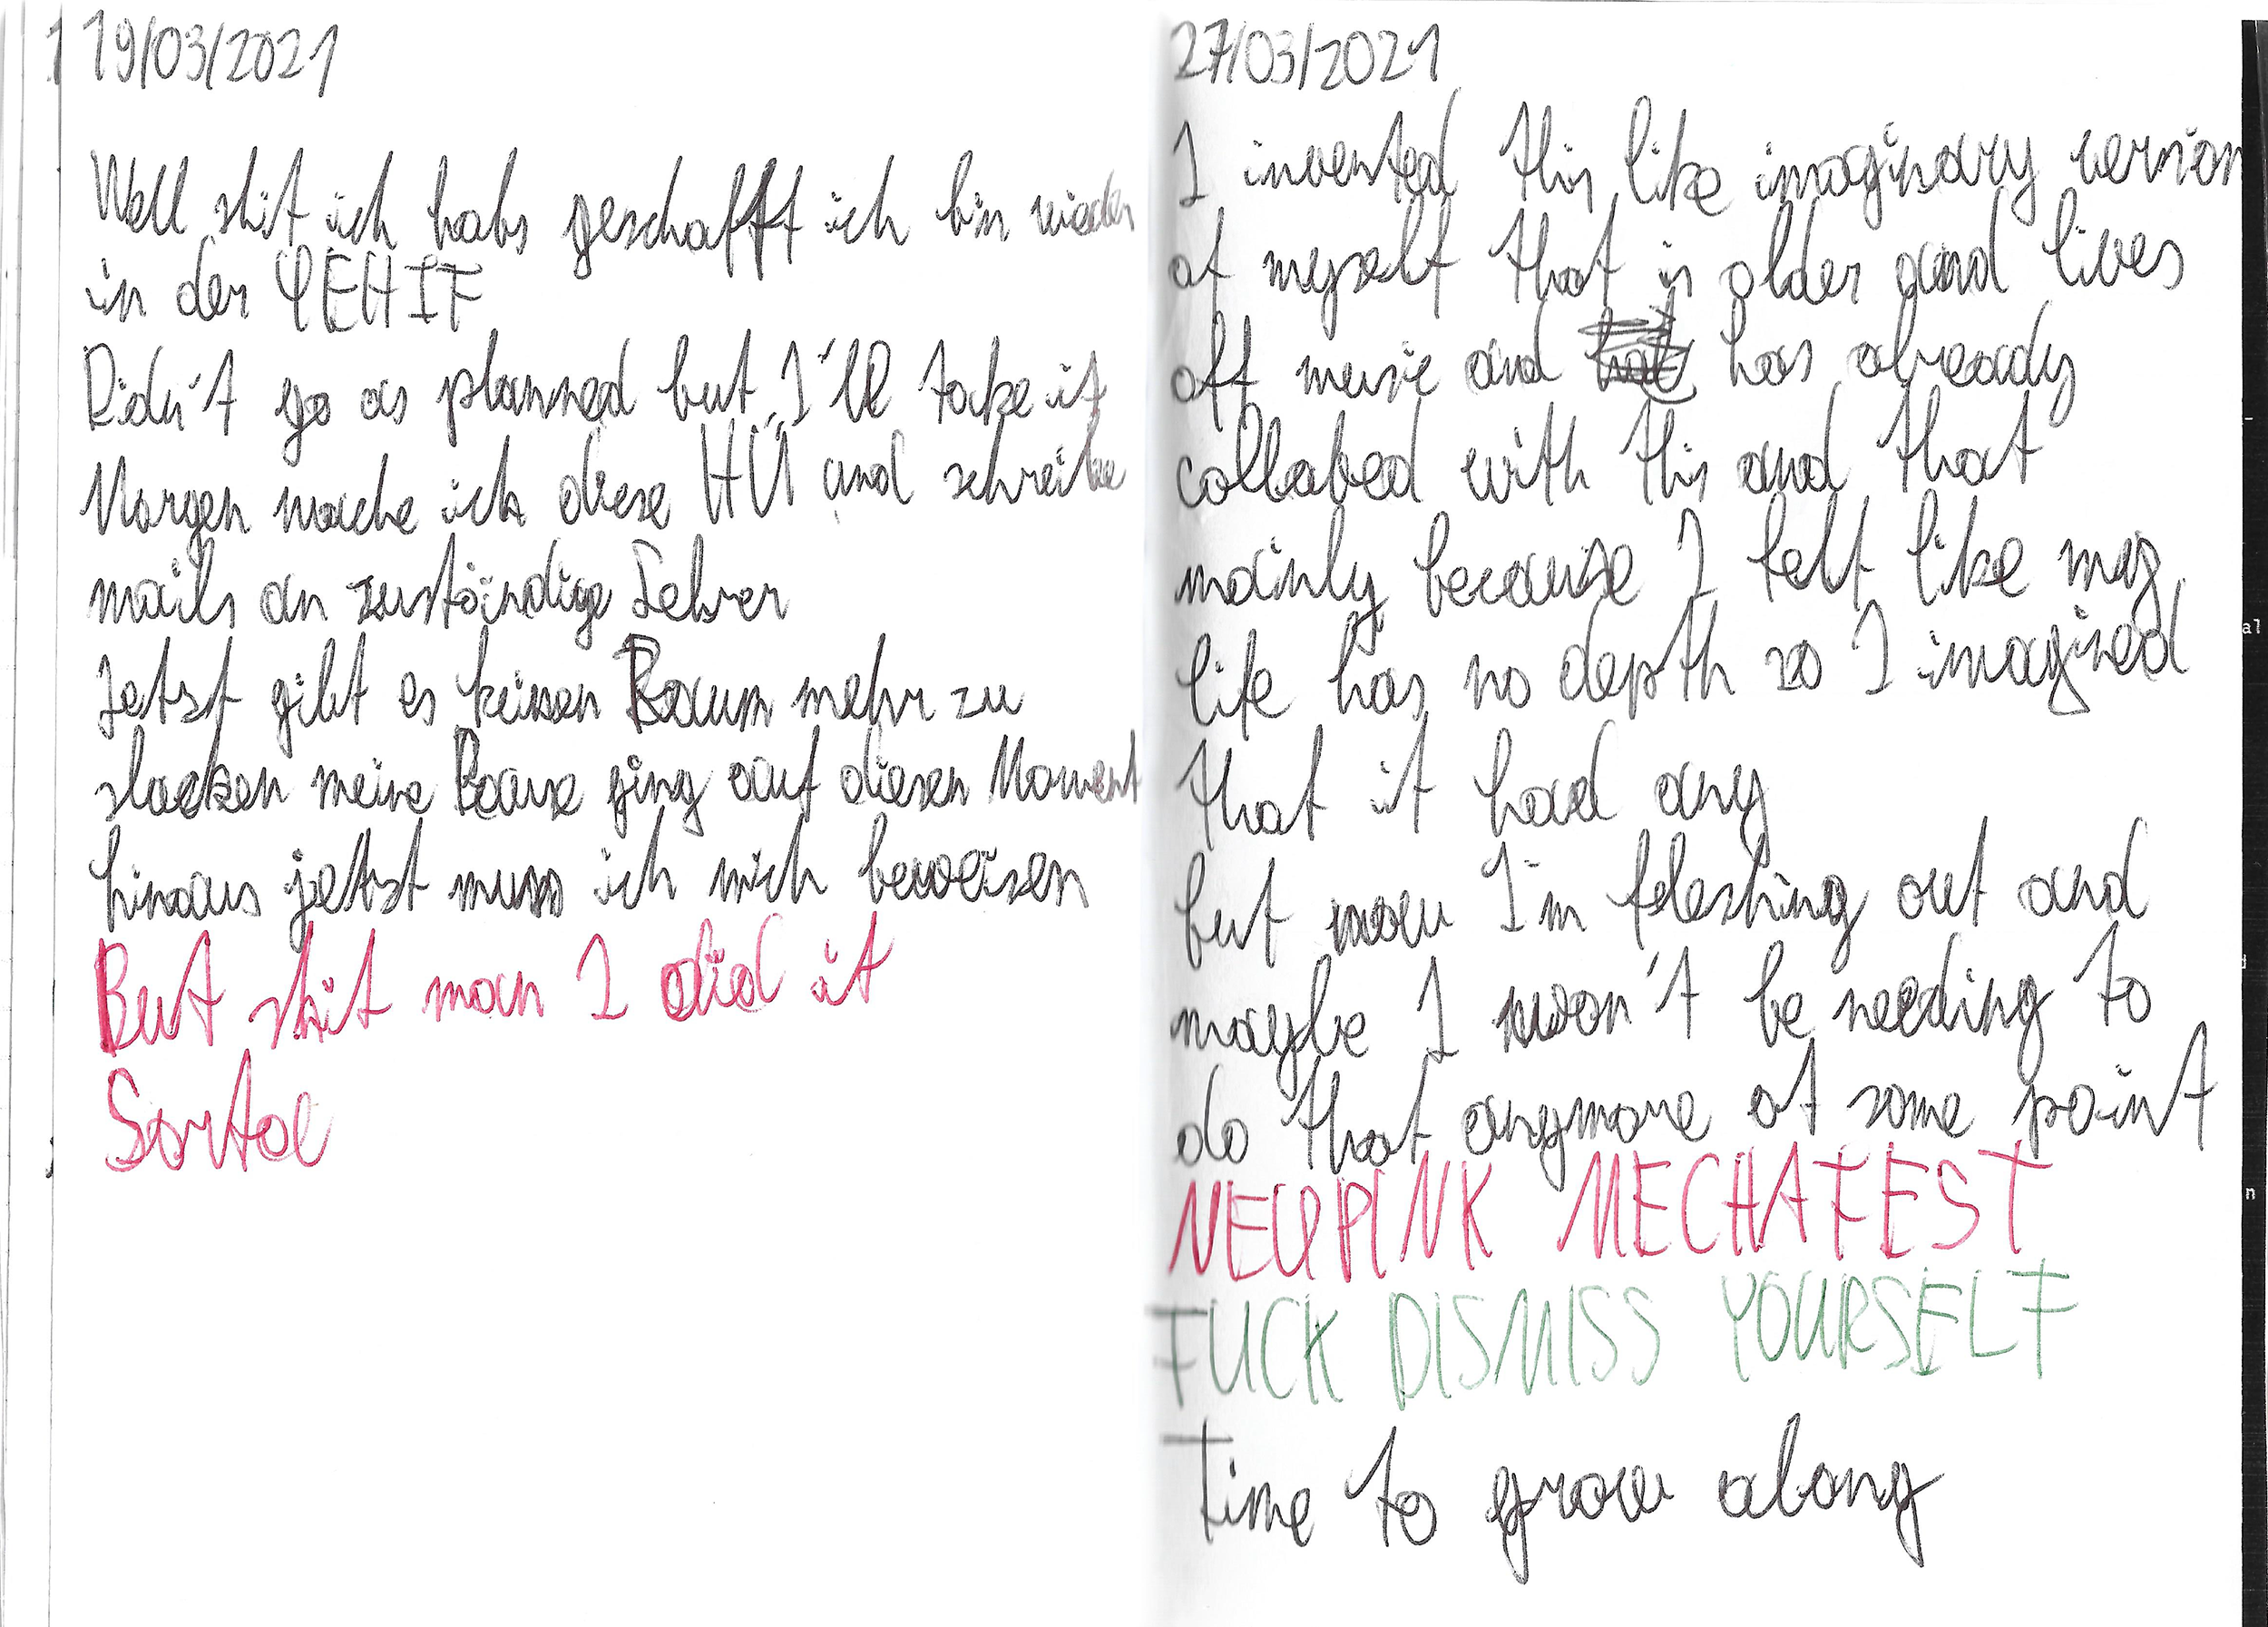 19/03/2021
Well shit ich habs geschafft ich bin wieder
in der 4EHIF
Didn't go as planned but I'll take it
Morgen mache ich diese HÜ und schreibe
mails an zuständige Lehrer
Jetzt gibt es keinen Raum mehr zu
slacken meine Pause ging auf diesen Moment
hinaus jetzt muss ich mich beweisen
But shit man I did it
Sorta
27/03/2021
I invented this like imaginary version
of myself that is older and lives
off music and has already
collabed with this and that
mainly because I felt like my
life has no depth so I imagined
that it had any
but now I'm fleshing out and
maybe I won't be needing to
do that anymore at some point
NEUPINK MECHAFEST
FUCK DISMISS YOURSELF
Time to grow along